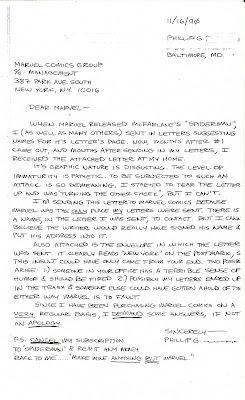 11/16/90
PHILLIP G.
BALTIMORE, MD.
MARVEL COMICS GROUP
% MANAGEMENT
387 PARK AVE. SOUTH
NEW YORK, N.Y. 10016
DEAR MARVEL—
WHEN MARVEL RELEASED McFARLANE'S "SPIDERMAN",
I (AS WELL AS MANY OTHERS) SENT IN LETTERS SUGGESTING
NAMES FOR IT'S LETTER'S PAGE. NOW, MONTHS AFTER #1
CAME OUT, AND MONTHS AFTER SENDING IN MY LETTERS, I
RECEIVED THE ATTACHED LETTER AT MY HOME.
IT'S GRAPHIC NATURE IS DISGUSTING. THE LEVEL OF
IMMATURITY IS PATHETIC. TO BE SUBJECTED TO SUCH AN
ATTACK IS SO DEMEANING. I STARTED TO TEAR THE LETTER
UP AND WAS "TURNING THE OTHER CHEEK", BUT I CAN'T.
I'M SENDING THIS LETTER TO MARVEL COMICS BECAUSE
MARVEL WAS THE ONLY PLACE MY LETTERS WERE SENT. THERE IS
A NAME IN THE LETTER I WAS SENT TO CONTACT. BUT I CAN'T
BELIEVE THE WRITER WOULD REALLY HAVE SIGNED HIS NAME &
PUT HIS ADDRESS INTO IT.
ALSO ATTACHED IS THE ENVELOPE IN WHICH THE LETTER
WAS SENT. IT CLEARLY READS "NEW YORK" ON THE POSTMARK, S
THIS INSULT COULD HAVE ONLY COME FROM YOUR END. TWO POSSI
ARISE: 1) SOMEONE IN YOUR OFFICE HAS A TERRIBLE SENSE OF
HUMOR & SHOULD BE FIRED 2) POSSIBLY MY LETTERS ENDED UP
IN THE TRASH & SOMEONE ELSE COULD HAVE GOTTEN AHOLD OF TH
EITHER WAY MARVEL IS TO FAULT.
SINCE I HAVE BEEN PURCHASING MARVEL COMICS ON A
VERY REGULAR BASIS, I DEMAND SOME ANSWERS, IF NOT
AN APOLOGY.
SINCERELY—
PHILLIP G
P.S. CANCEL MY SUBSCRIPTION
TO "SPIDERMAN" & REMIT ANY MONEY
BACK TO ME..... "MAKE MINE ANYTHING BUT MARVEL."